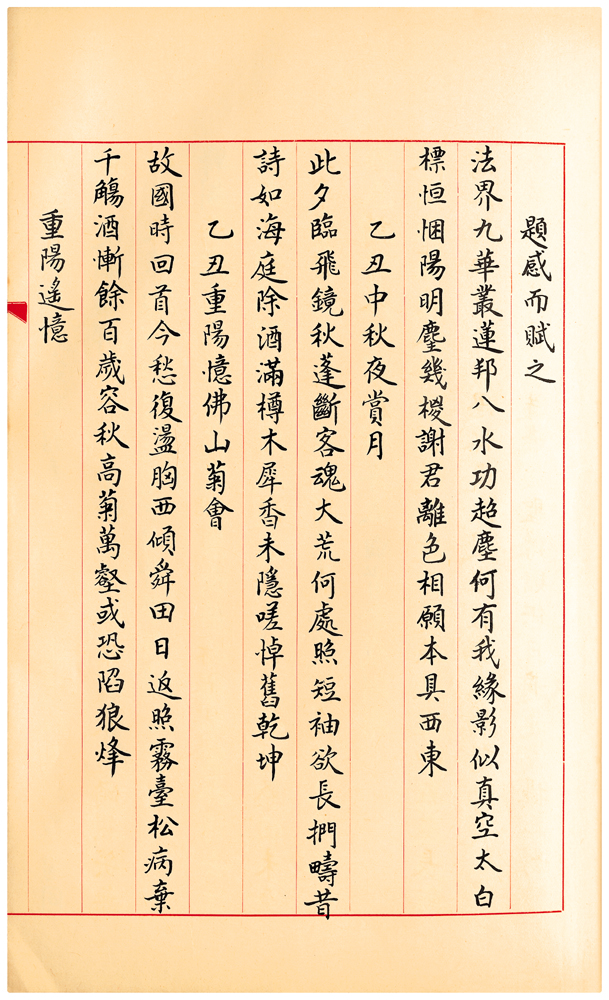 題感而賦之
法界九華叢蓮邦八水功超塵何有我緣影似真空太白
標恒悃陽明麈幾椶謝君離色相願本具西東
乙丑中秋夜賞月
此夕臨飛鏡秋蓬斷客魂大荒何處照短袖欲長捫疇昔
詩如海庭除酒滿樽木犀香未隱嗟悼舊乾坤
乙丑重陽憶佛山菊會
故國時回首今愁復盪胸西傾舜田日返照霧臺松病棄
千觴酒慚餘百歲容秋高菊萬壑或恐陷狼烽
重陽遙憶